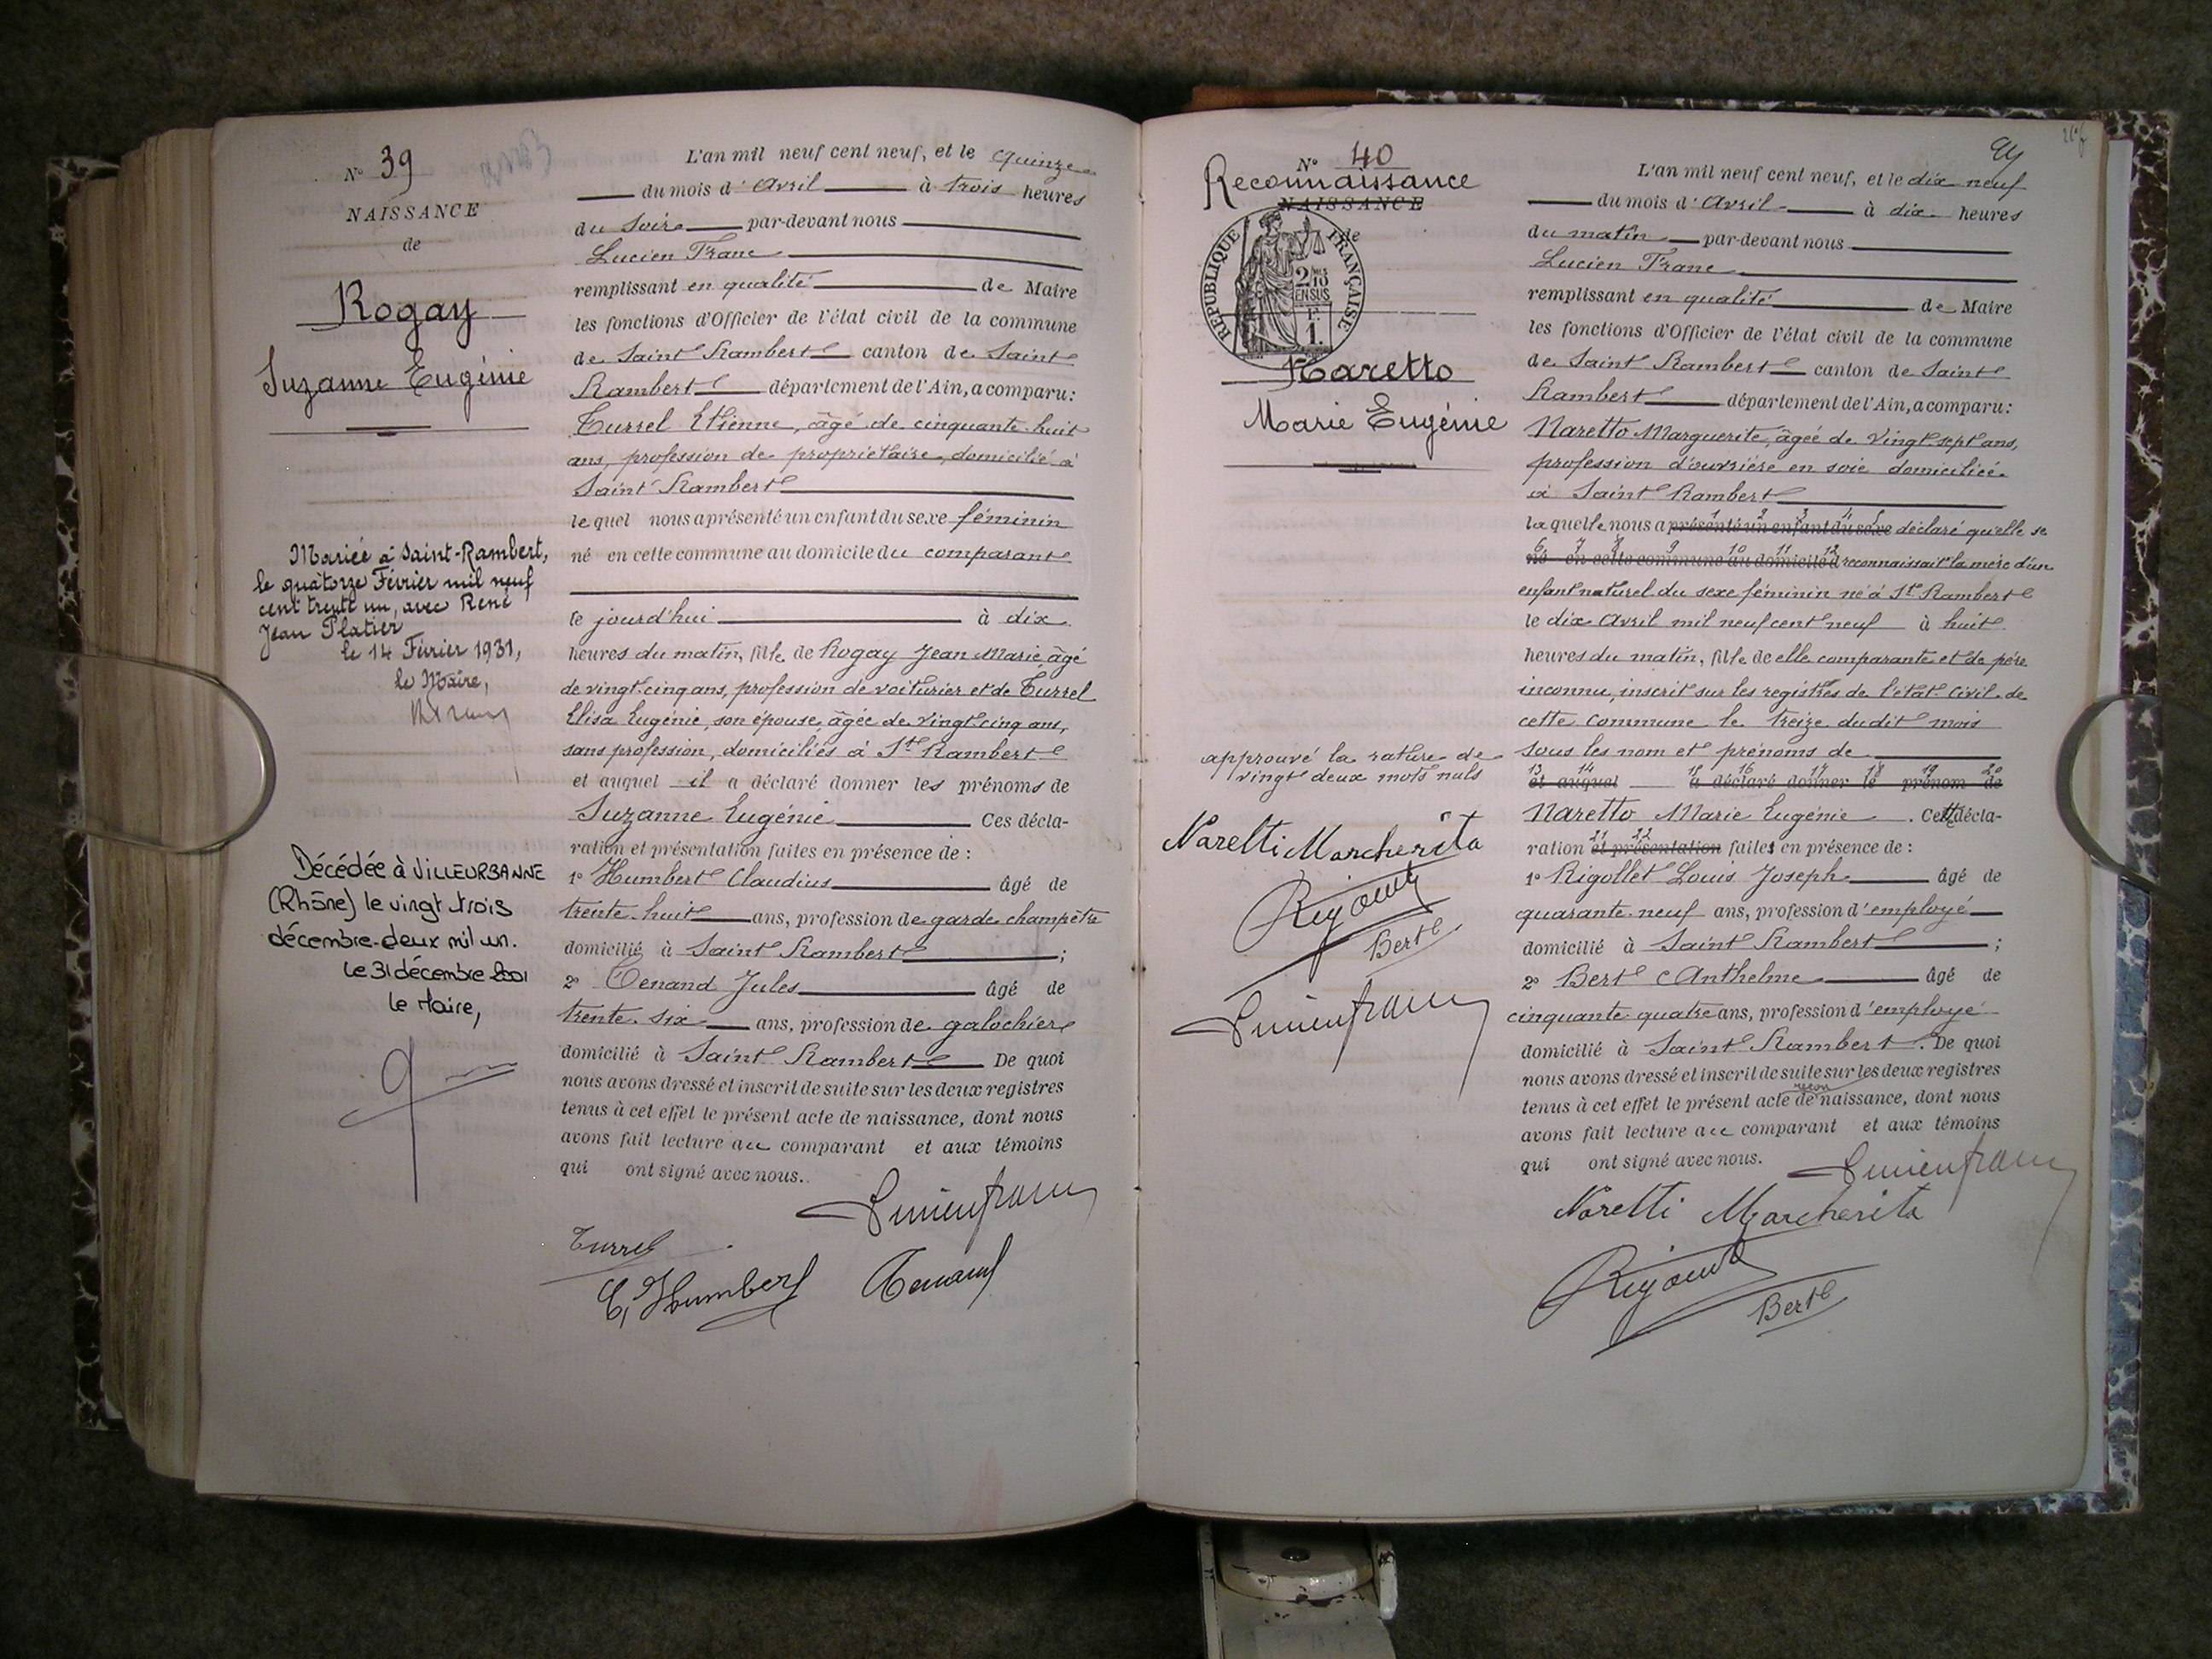 N° 39
NAISSANCE
de
Rogay
Suzanne Eugénie
Mariée à Saint-Rambert,
le quatorze Février mil neuf
cent trente un, avec René
Jean Platier
le 14 Février 1931,
le Maire,
Décédée à VILLEURBANNE
(Rhône) le vingt trois
décembre deux mil un.
Le 31 décembre 2001
Le Maire,
L'an mil neuf cent neuf, et le quinze
du mois d'Avril à trois heures
du soir par-devant nous
Lucien Franc
remplissant en qualité de Maire
les fonctions d'Officier de l'état civil de la commune
de Saint Rambert canton de Saint
Rambert département de l'Ain, a comparu:
Turrel Etienne, âgé de cinquante huit
ans, profession de propriétaire, domicilié à
Saint Rambert
lequel nous a présenté un enfant du sexe féminin
né en cette commune au domicile du comparant
le jourd'hui à dix
heures du matin, fille de Rogay Jean Marie, âgé
de vingt cinq ans, profession de voiturier et de Turrel
Elisa Eugénie, son épouse, âgée de vingt cinq ans,
sans profession, domiciliés à St Rambert
et auquel il a déclaré donner les prénoms de
Suzanne Eugénie Ces décla-
ration et présentation faites en présence de :
1° Humbert Claudius âgé de
trente huit ans, profession de garde champêtre
domicilié à Saint Rambert ;
2° Tenand Jules âgé de
trente six ans, profession de galochier
domicilié à Saint Rambert De quoi
nous avons dressé et inscrit de suite sur les deux registres
tenus à cet effet le présent acte de naissance, dont nous
avons fait lecture au comparant et aux témoins
qui ont signé avec nous.
Lucien Franc
Turrel
C. Humbert Tenand
N° 40
Reconnaissance
NAISSANCE
de
REPUBLIQUE FRANÇAISE
2/10
EN SUS
1.
Naretto
Marie Eugénie
approuvé la rature de
vingt deux mots nuls
Naretti Margherita
Bert
Lucien Franc
L'an mil neuf cent neuf, et le dix neuf
du mois d'Avril à dix heures
du matin par-devant nous
Lucien Franc
remplissant en qualité de Maire
les fonctions d'Officier de l'état civil de la commune
de Saint Rambert canton de Saint
Rambert département de l'Ain, a comparu:
Naretto Marguerite, âgée de vingt sept ans,
profession d'ouvrière en soie domiciliée
à Saint Rambert
1 2 3 4 5
laquelle nous a présenté un enfant du sexe déclaré qu'elle se
6 7 8 9 10 11 12
né en cette commune au domicile d reconnaissait la mère d'un
enfant naturel du sexe féminin né à St Rambert
le dix Avril mil neuf cent neuf à huit
heures du matin, fille de elle comparante et de père
inconnu, inscrit sur les registres de l'état civil de
cette commune le treize dudit mois
sous les nom et prénoms de
13 14 15 16 17 18 19 20
et auquel a déclaré donner le prénom de
Naretto Marie Eugénie. Cette décla-
21 22
ration et présentation faites en présence de :
1° Rigollet Louis Joseph âgé de
quarante neuf ans, profession d'employé
domicilié à Saint Rambert ;
2° Bert Anthelme âgé de
cinquante quatre ans, profession d'employé
domicilié à Saint Rambert. De quoi
nous avons dressé et inscrit de suite sur les deux registres
recon
tenus à cet effet le présent acte de naissance, dont nous
avons fait lecture au comparant et aux témoins
qui ont signé avec nous.
Lucien Franc
Naretti Margherita
Bert